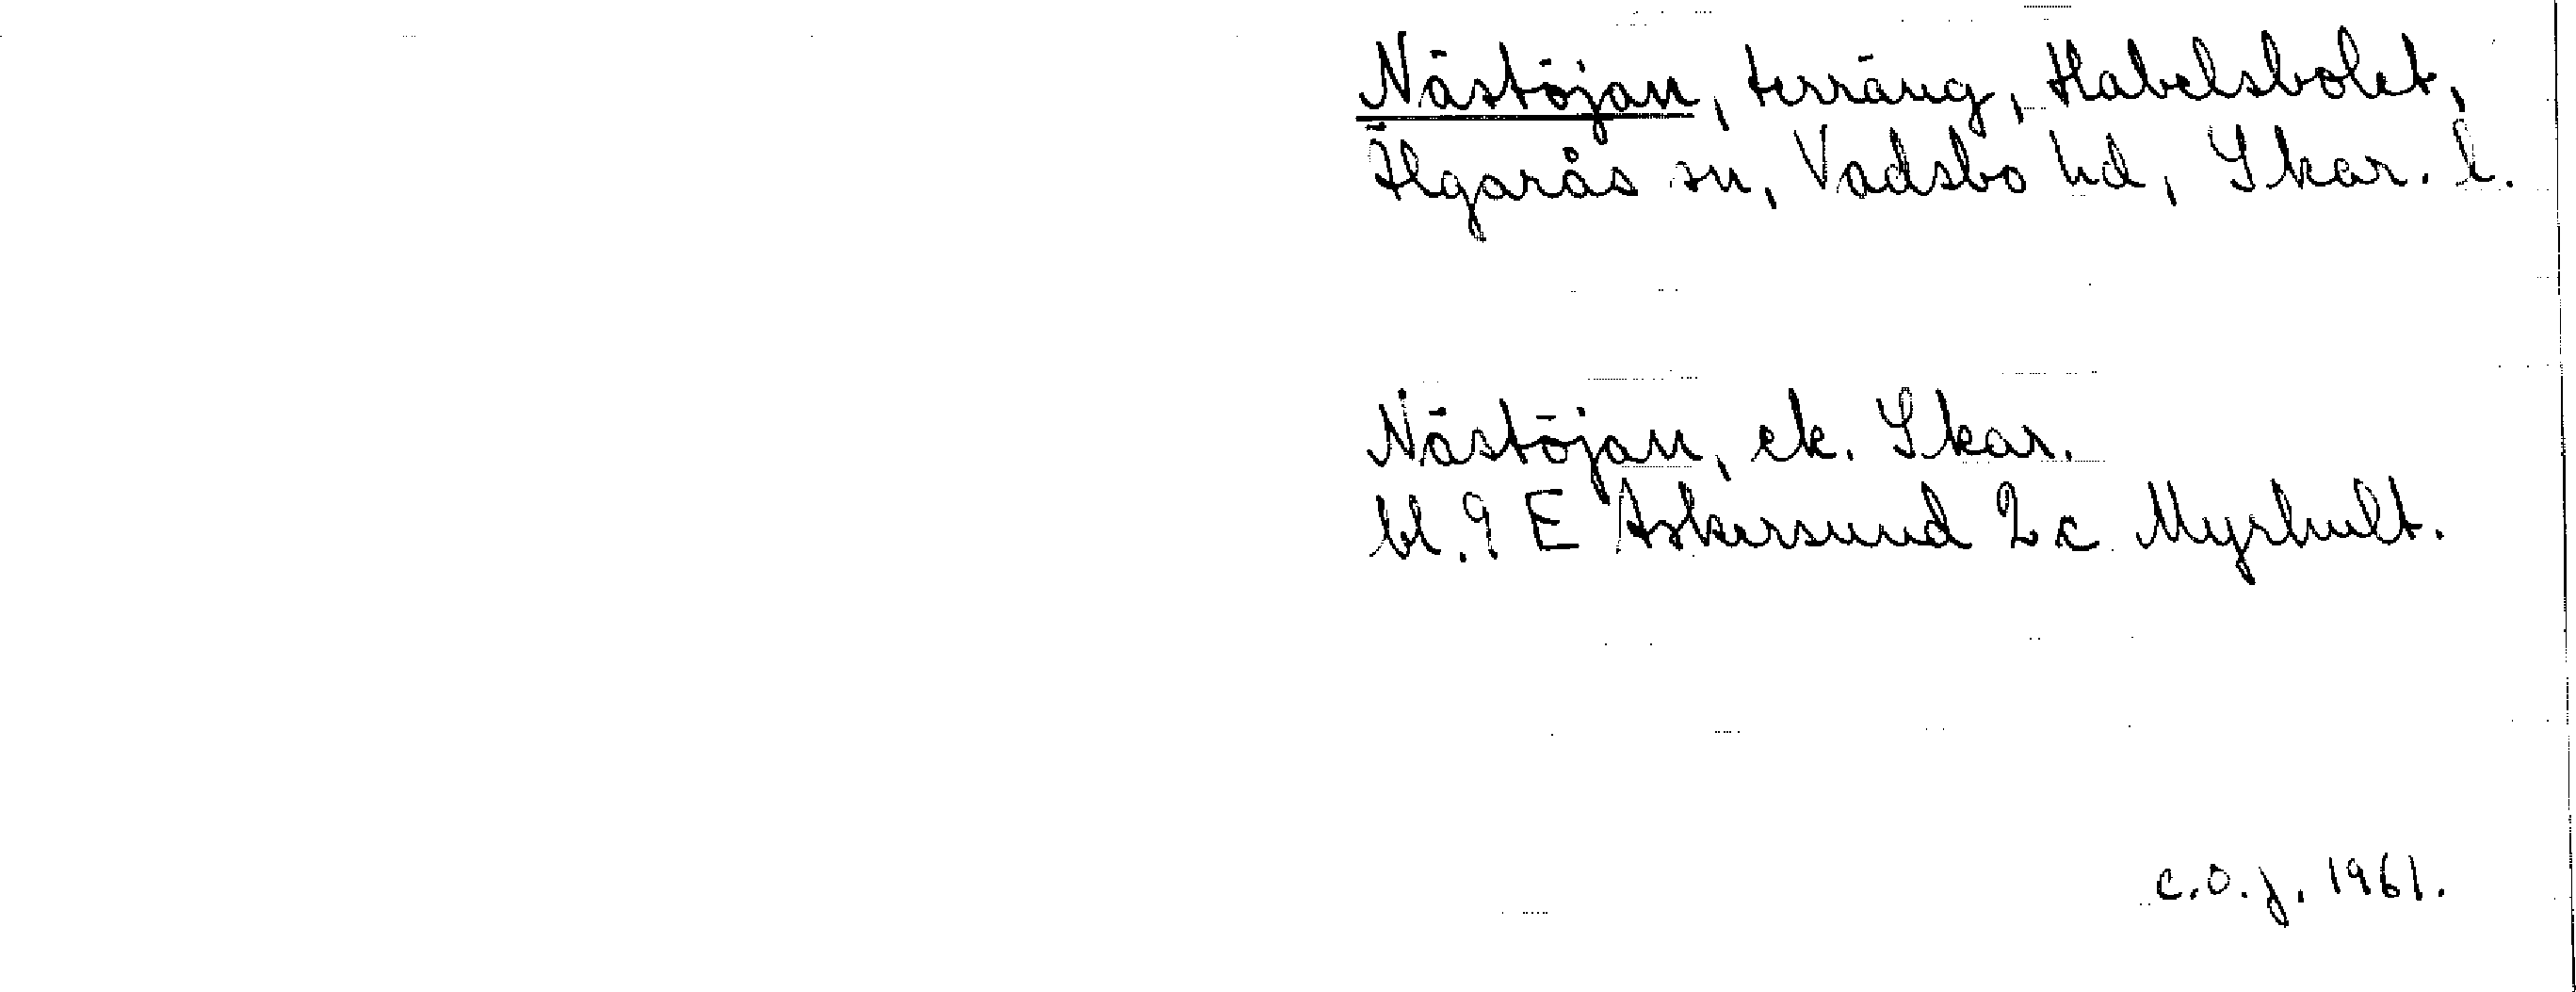 Nästöjan, terräng, Habelsbolet,
Älgarås sn, Vadsbo hd, Skar. l.
Nästöjan, ek. Skar.
bl. 9 E Askersund 2 c Myrhult.
c.o.j. 1961.